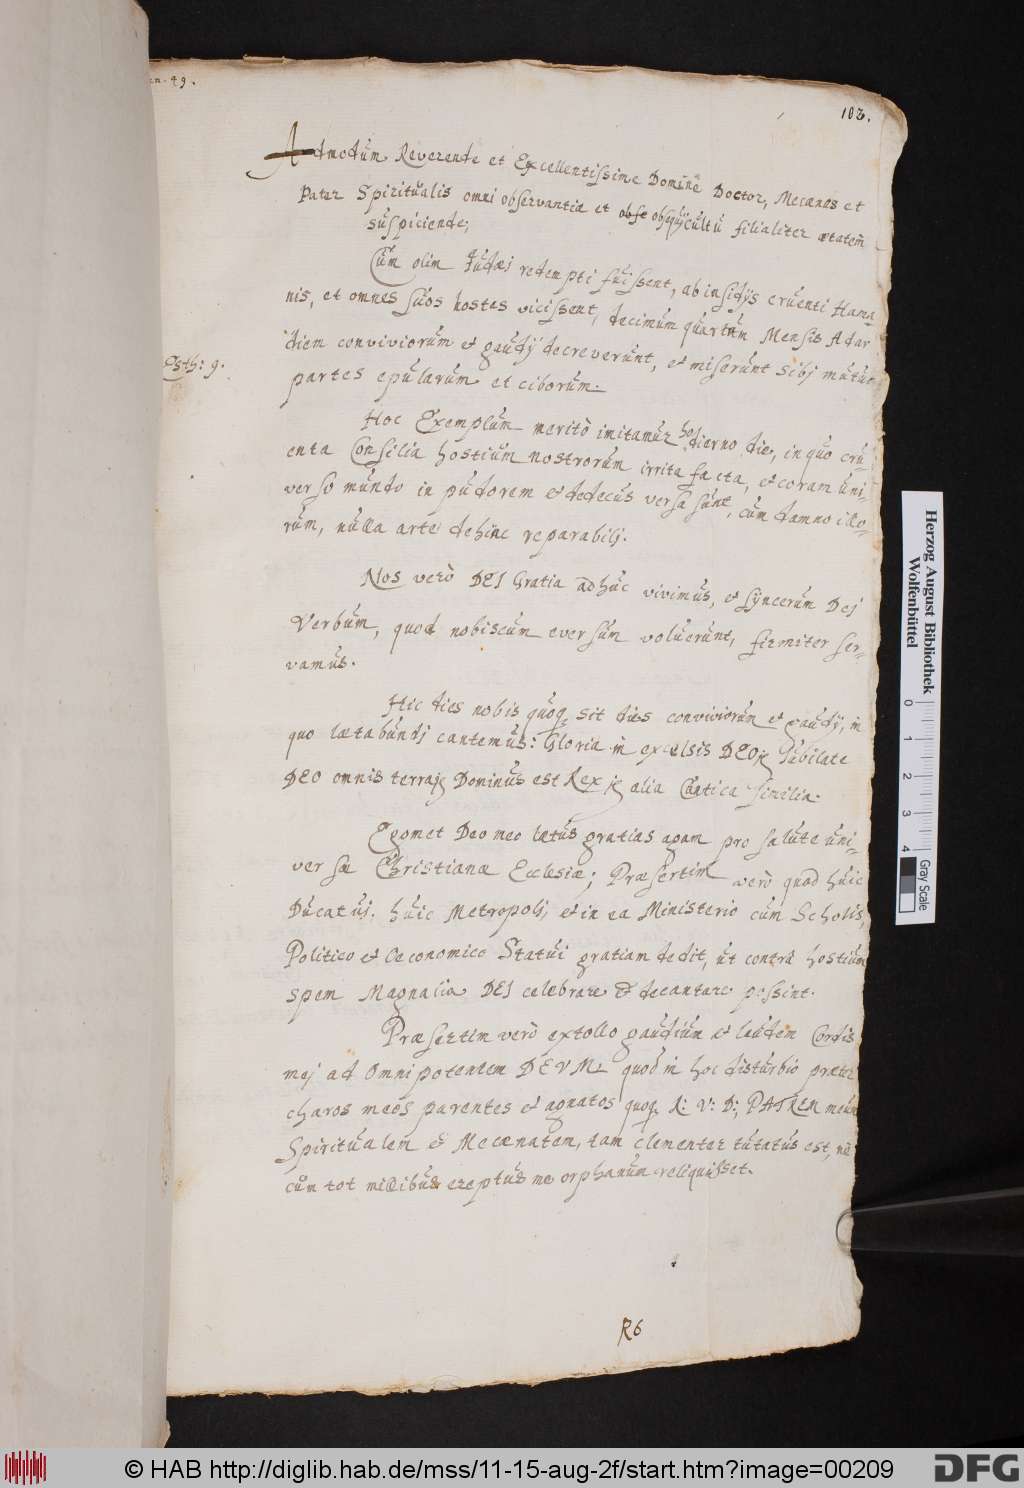 102.
Admodum Reverende et Excellentissime Domine Doctor, Mecænas et
Pater Spiritualis omni observantia et obse obsequij cultu filialiter ætatem
suspiciende;
Cum olim Judæi redempti fuissent, ab insidijs cruenti Hama-
nis, et omnes suos hostes vicissent, decimum quartum Mensis Adar
diem conviviorum et gaudij decreverunt, et miserunt sibj mutuo
Esth: 9.
partes epularum et ciborum.
Hoc Exemplum meritò imitamur hodierno die, in quo cru-
enta Consilia hostium nostrorum irrita facta, et coram uni-
verso mundo in pudorem et dedecus versa sunt, cum damno illo-
rum, nulla arte dehinc reparabilj.
Nos verò DEI Gratia adhuc vivimus, et syncerum Dej
Verbum, quod nobiscum eversum voluerunt, firmiter ser-
vamus.
Hic dies nobis quoq sit dies conviviorum et gaudij, in
quo lætabundj cantemus: Gloria in excelsis DEO Jubilate
DEO omnis terra Dominus est Rex alia Cantica similia.
Egomet Deo meo lætus gratias agam pro salute uni-
versæ Christianæ Ecclesiæ; Præsertim verò quod huic
Ducatui, huic Metropolj, et in ea Ministerio cum Scholis,
Politico et Oeconomico Statui gratiam dedit, ut contra hostium
spem Magnalia DEI celebrare & decantare possint.
Præsertim verò extollo gaudium et laudem Cordis
mej ad Omnipotentem DEUM, quod in hoc disturbio præter
charos meos parentes et agnatos quoq R: V: D; PATREM meum
Spiritualem & Mecænatem, tam clementer tutatus est, ne
cum tot millibus ereptus me orphanum reliquisset.
R6
Herzog August Bibliothek
Wolfenbüttel
0 1 2 3 4
Gray Scale
© HAB http://diglib.hab.de/mss/11-15-aug-2f/start.htm?image=00209
DFG